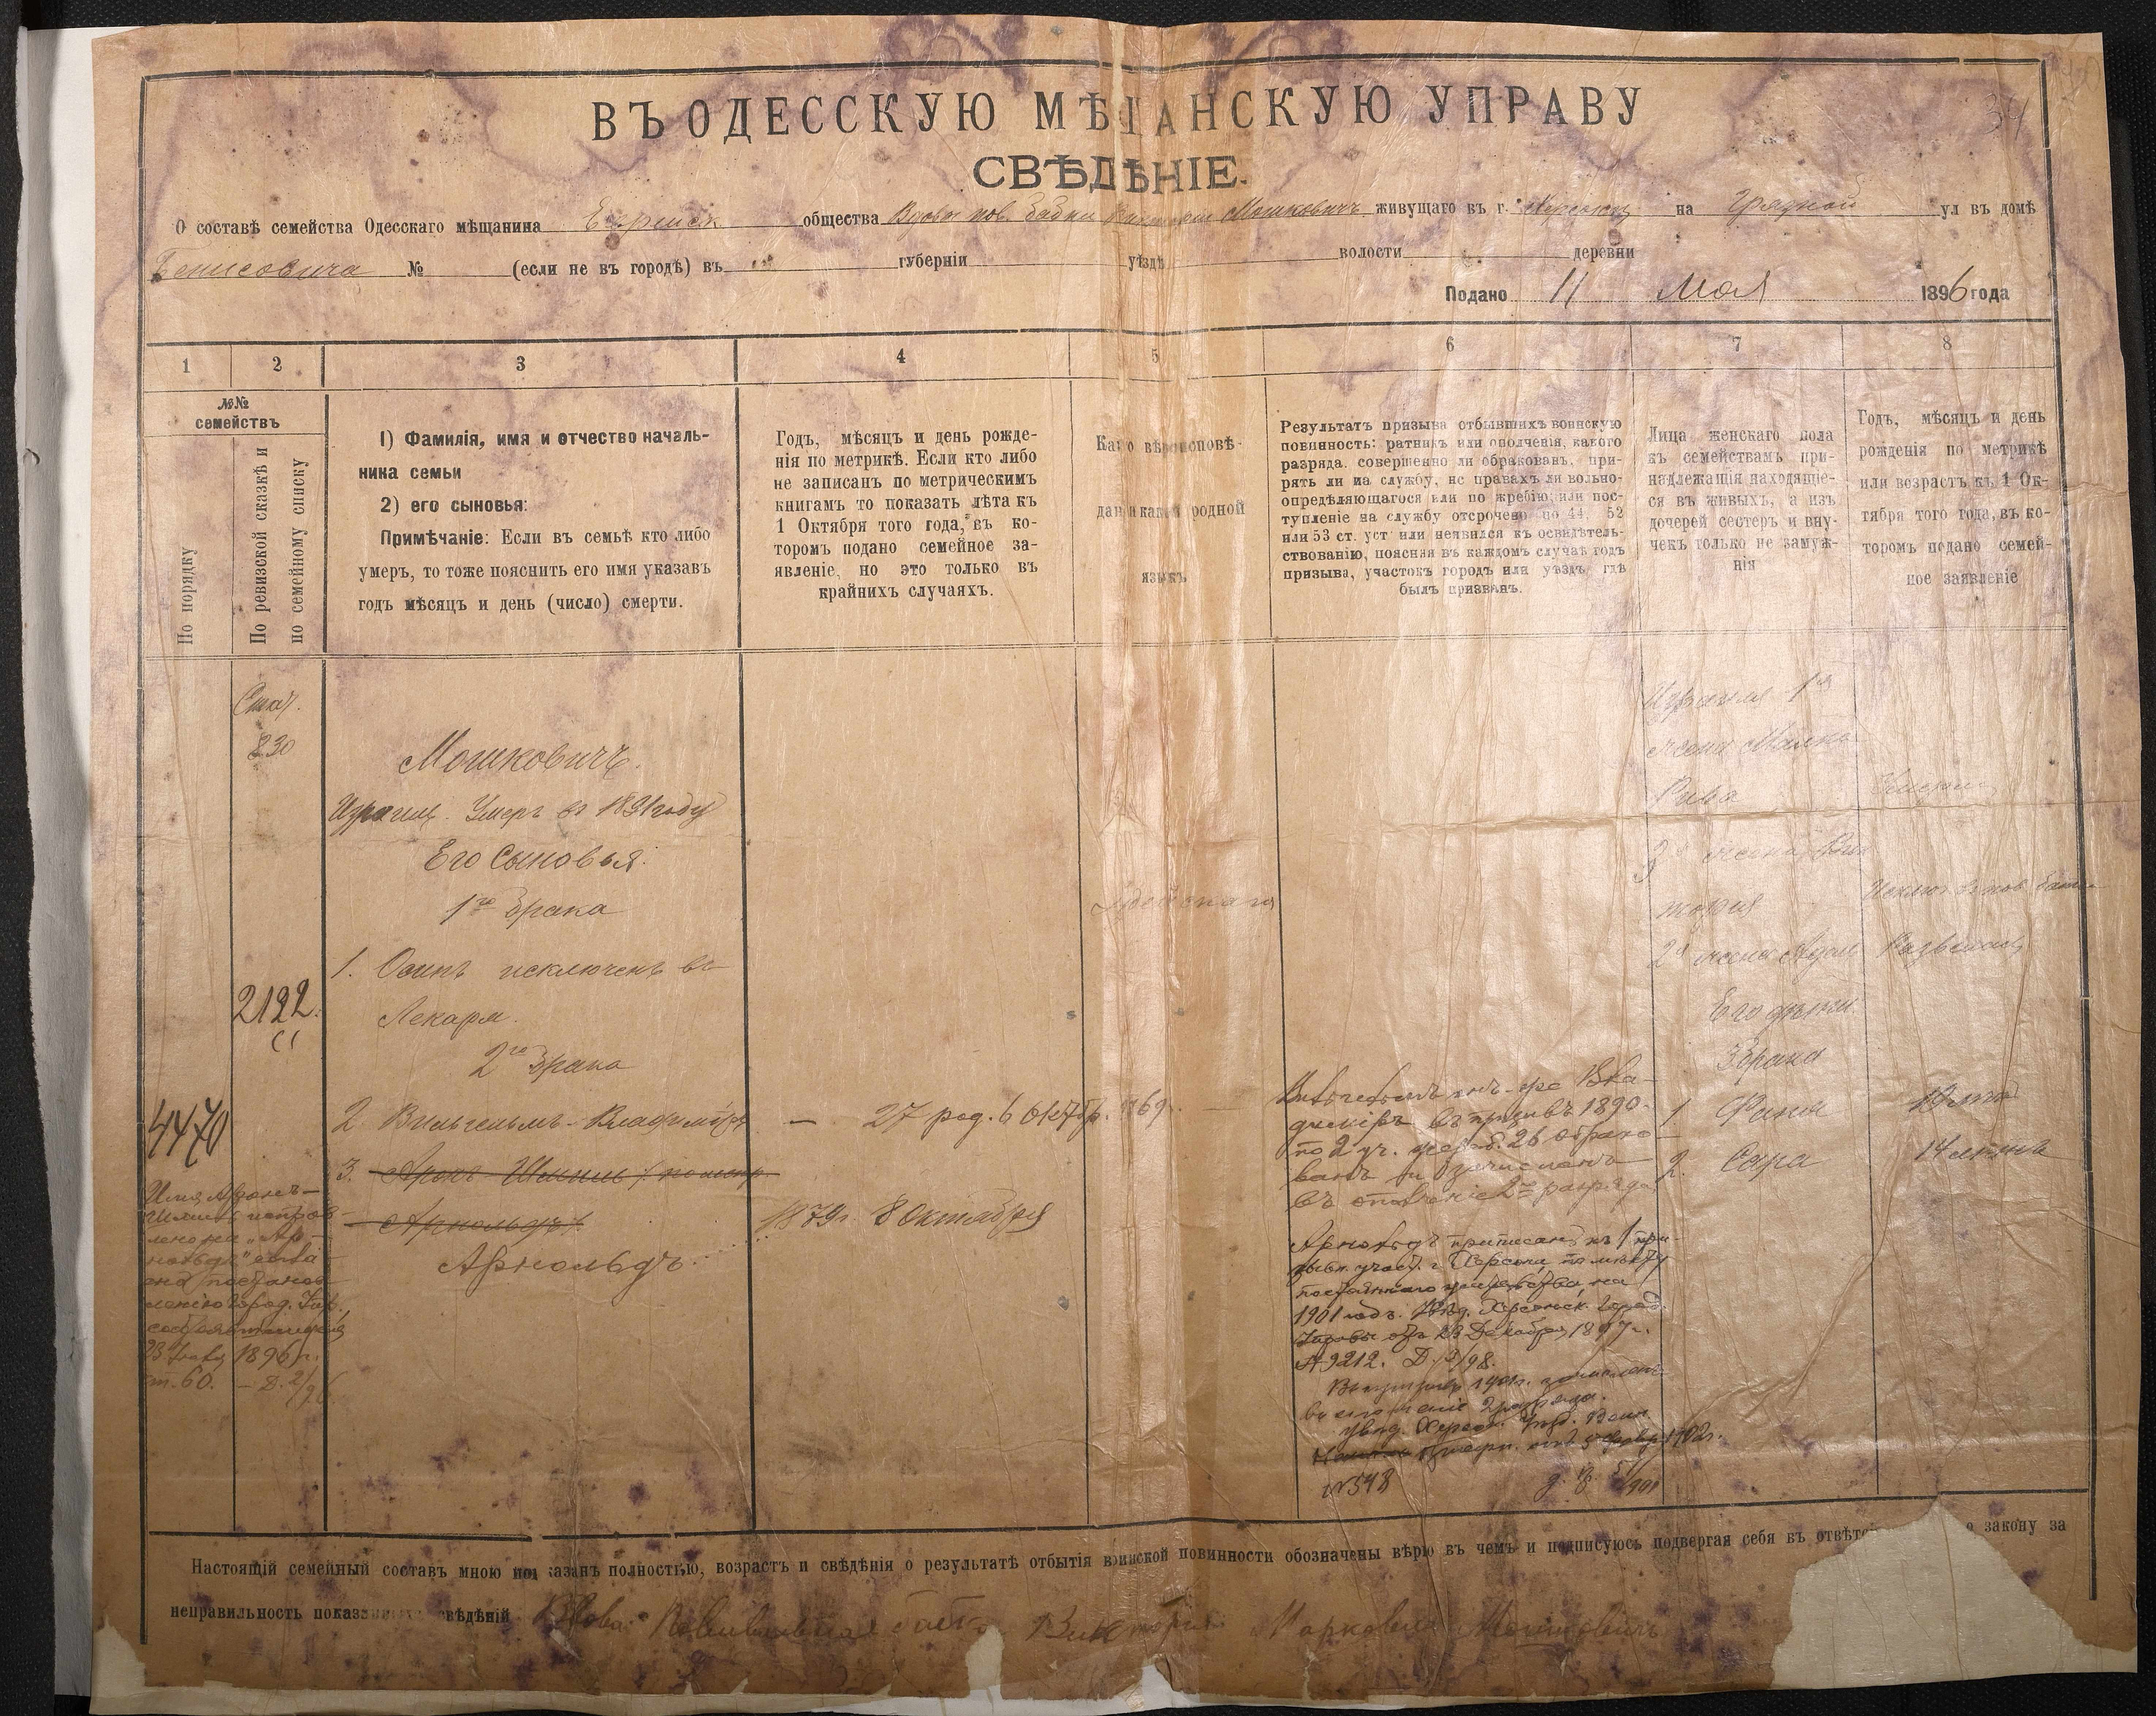 34
ВЪ ОДЕССКУЮ МѢЩАНСКУЮ УПРАВУ
СВѢДѢНІЕ.
О составѣ семейства Одесскаго мѣщанина Еврейск общества Вдова пов. бабки Виктории Мошковичъ живущаго въ г. Херсонѣ на ул въ домѣ
№ (если не въ городѣ) въ губерніи уѣздѣ волости деревни
Подано 11 Мая 1896 года
1 2 3 4 5 6 7 8
№№
семействъ
По порядку
По ревизской сказкѣ и
по семейному списку
1) Фамилія, имя и отчество началь-
ника семьи
2) его сыновья:
Примѣчаніе: Если въ семьѣ кто либо
умеръ, то тоже пояснить его имя указавъ
годъ мѣсяцъ и день (число) смерти.
Годъ, мѣсяцъ и день рожде-
нія по метрикѣ. Если кто либо
не записанъ по метрическимъ
книгамъ то показать лѣта къ
1 Октября того года, въ ко-
торомъ подано семейное за-
явленіе, но это только въ
крайнихъ случаяхъ.
Како вѣроисповѣ-
данія какой родной
языкъ
Результатъ призыва отбывшихъ воинскую
повинность: ратникъ или ополченія, какого
разряда, совершенно ли обракованъ, при-
рять ли на службу, нс правахъ ли вольно-
опредѣляющагося или по жребію, или пос-
тупленіе на службу отсрочено по 44, 52
или 53 ст. уст или неявился къ освидѣтель-
ствованію, поясняя въ каждомъ случаѣ годъ
призыва, участокъ городъ или уѣздъ гдѣ
былъ призванъ.
Лица женскаго пола
къ семействамъ при-
надлежащія находящіе-
ся въ живыхъ, а изъ
дочерей сестеръ и вну-
чекъ только не замуж-
нія
Годъ, мѣсяцъ и день
рожденія по метрикѣ
или возрастъ къ 1 Ок-
тября того года, въ ко-
торомъ подано семей-
ное заявленіе
830
Мошковичъ.
Израиль. Умеръ въ 1891 году
Его Сыновья.
1го брака
1. Осипъ исключенъ въ
Лекаря.
2го брака
2122.
4470
2 Вильгельмъ-Владиміръ — 27 род. 6 Октбр. 1869.
3. Аронъ-Шмиль
Арнольдъ
1879г. 8 Октября
Арнольдъ.
Имя Аронъ-
Шмиль исправ-
лено на „Ар-
нольдъ"
1896 г.
ст. 60. — Д. 2/96
Еврейскаго
въ призывъ 1890
по 2 уч. жереб. 26 обрако-
ванъ и зачисленъ
въ ополченіе 2го разряда.
Арнольдъ приписанъ къ 1 при-
зывн. участ. г. Херсона, по мѣсту
постояннаго жительства, на
1901 годъ. Увѣд. Херсонск. Город.
Управы отъ 23 Декабря 1897 г.
№ 9212.
Въ призывъ 1901г. зачисленъ
въ ополченіе 2 разряда.
увѣд. Херсон. Уѣзд. Воин.
1902г.
№ 548
Израиля 1я
жена Малка
Рива Умерла
жена Вик
торія
2я жена Адель
Его дѣти
3 брака
1. Фаня
2. Сара 14 лѣтъ
Настоящій семейный составъ мною показанъ полностью, возрастъ и свѣдѣнія о результатѣ отбытія воинской повинности обозначены вѣрю въ чемъ и подписуюсь подвергая себя въ отвѣтс о закону за
неправильность показанныхъ свѣдѣній Вдова Повивальная бабка Виктория Марковна Мошковичъ